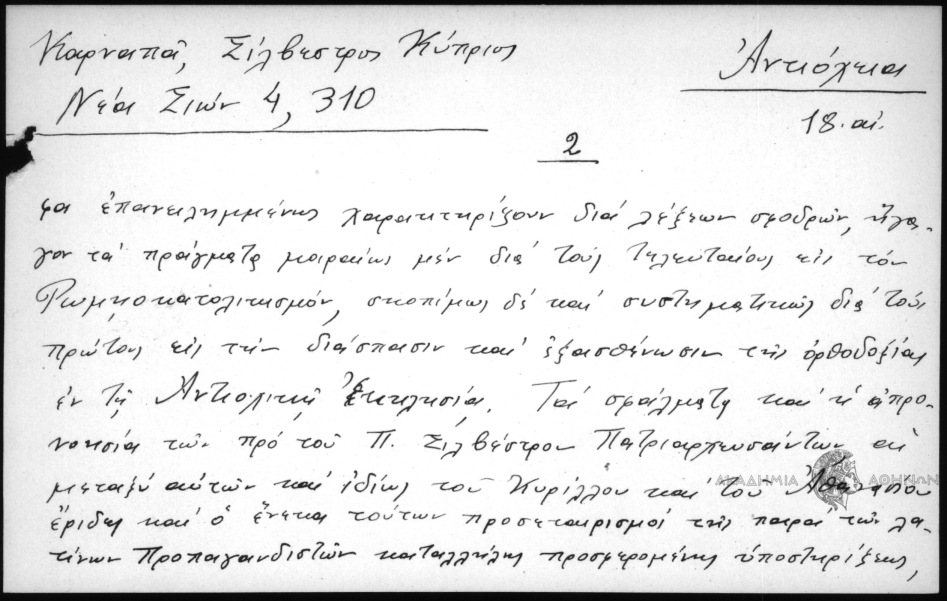 Καρναπᾶ, Σίλβεστρος Κύπριος
Νέα Σιών 4, 310
Ἀντιόχεια
18. αἰ.
2
φα ἐπανειλημμένως χαρακτηρίζουν διά λέξεων σφοδρῶν, ἤγα-
γον τά πράγματα μοιραίως μέν διά τούς τελευταίους εἰς τόν
Ρωμηοκατολικισμόν, σκοπίμως δέ καί συστηματικῶς διά τούς
πρώτους εἰς τήν διάσπασιν καί ἐξασθένωσιν τῆς ὀρθοδοξίας
ἐν τῇ Ἀντιοχικῇ Ἐκκλησίᾳ. Τά σφάλματα καί ἡ ἀπρο-
νοησία τῶν πρό τοῦ Π. Σιλβέστρου Πατριαρχευσάντων αἱ
μεταξύ αὐτῶν καί ἰδίως τοῦ Κυρίλλου καί τοῦ Ἀθανασίου
ἔριδες καί ὁ ἕνεκα τούτων προσεταιρισμός τῆς παρά τῶν λα-
τίνων Προπαγανδιστῶν καταλλήλως προσφερομένης ὑποστηρίξεως,
ΑΚΑΔΗΜΙΑ ΑΘΗΝΩΝ